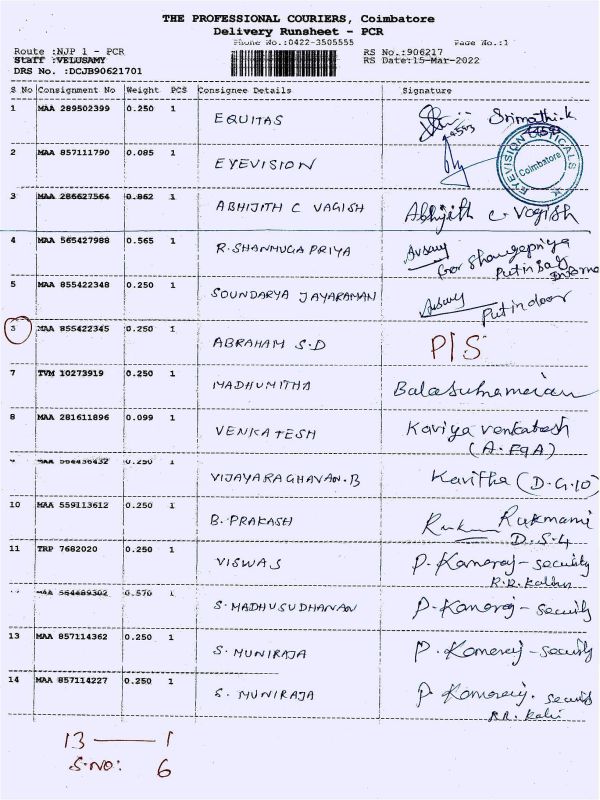 THE PROFESSIONAL COURIERS, Coimbatore
Delivery Runsheet - PCR
Phone No.:0422-3505555 Page No.:1
Route :NJP 1 - PCR RS No.:906217
Staff :VELUSAMY RS Date:15-Mar-2022
DRS No. :DCJB90621701
S No Consignment No Weight PCS Consignee Details Signature
1 MAA 289502399 0.250 1 EQUITAS Srimathi.k
44593
2 MAA 857111790 0.085 1 EYEVISION EYEVISION OPTICALS Coimbatore
3 MAA 286627564 0.862 1 ABHIJITH C VAGISH Abhijith C. Vagish
4 MAA 565427988 0.565 1 R. SHANMUGA PRIYA
Put in bag
5 MAA 855422348 0.250 1 SOUNDARYA JAYARAMAN Put in door
MAA 855422345 0.250 1 ABRAHAM S.D P/S
7 TVM 10273919 0.250 1 MADHUMITHA
8 MAA 281611896 0.099 1 VENKATESH Kaviya Venkatesh
MAA 564436432 0.250 1 VIJAYARAGHAVAN.B Kavitha (D.G.10)
10 MAA 559113612 0.250 1 B. PRAKASH Rukmani
D.S.4
11 TRP 7682020 0.250 1 VISWAS P. Kamaraj - security
MAA 564689302 0.570 1 S. MADHUSUDHANAN P. Kamaraj - security
13 MAA 857114362 0.250 1 S. MUNIRAJA P. Kamaraj - security
14 MAA 857114227 0.250 1 S. MUNIRAJA P. Kamaraj.
13 — 1
S.NO: 6